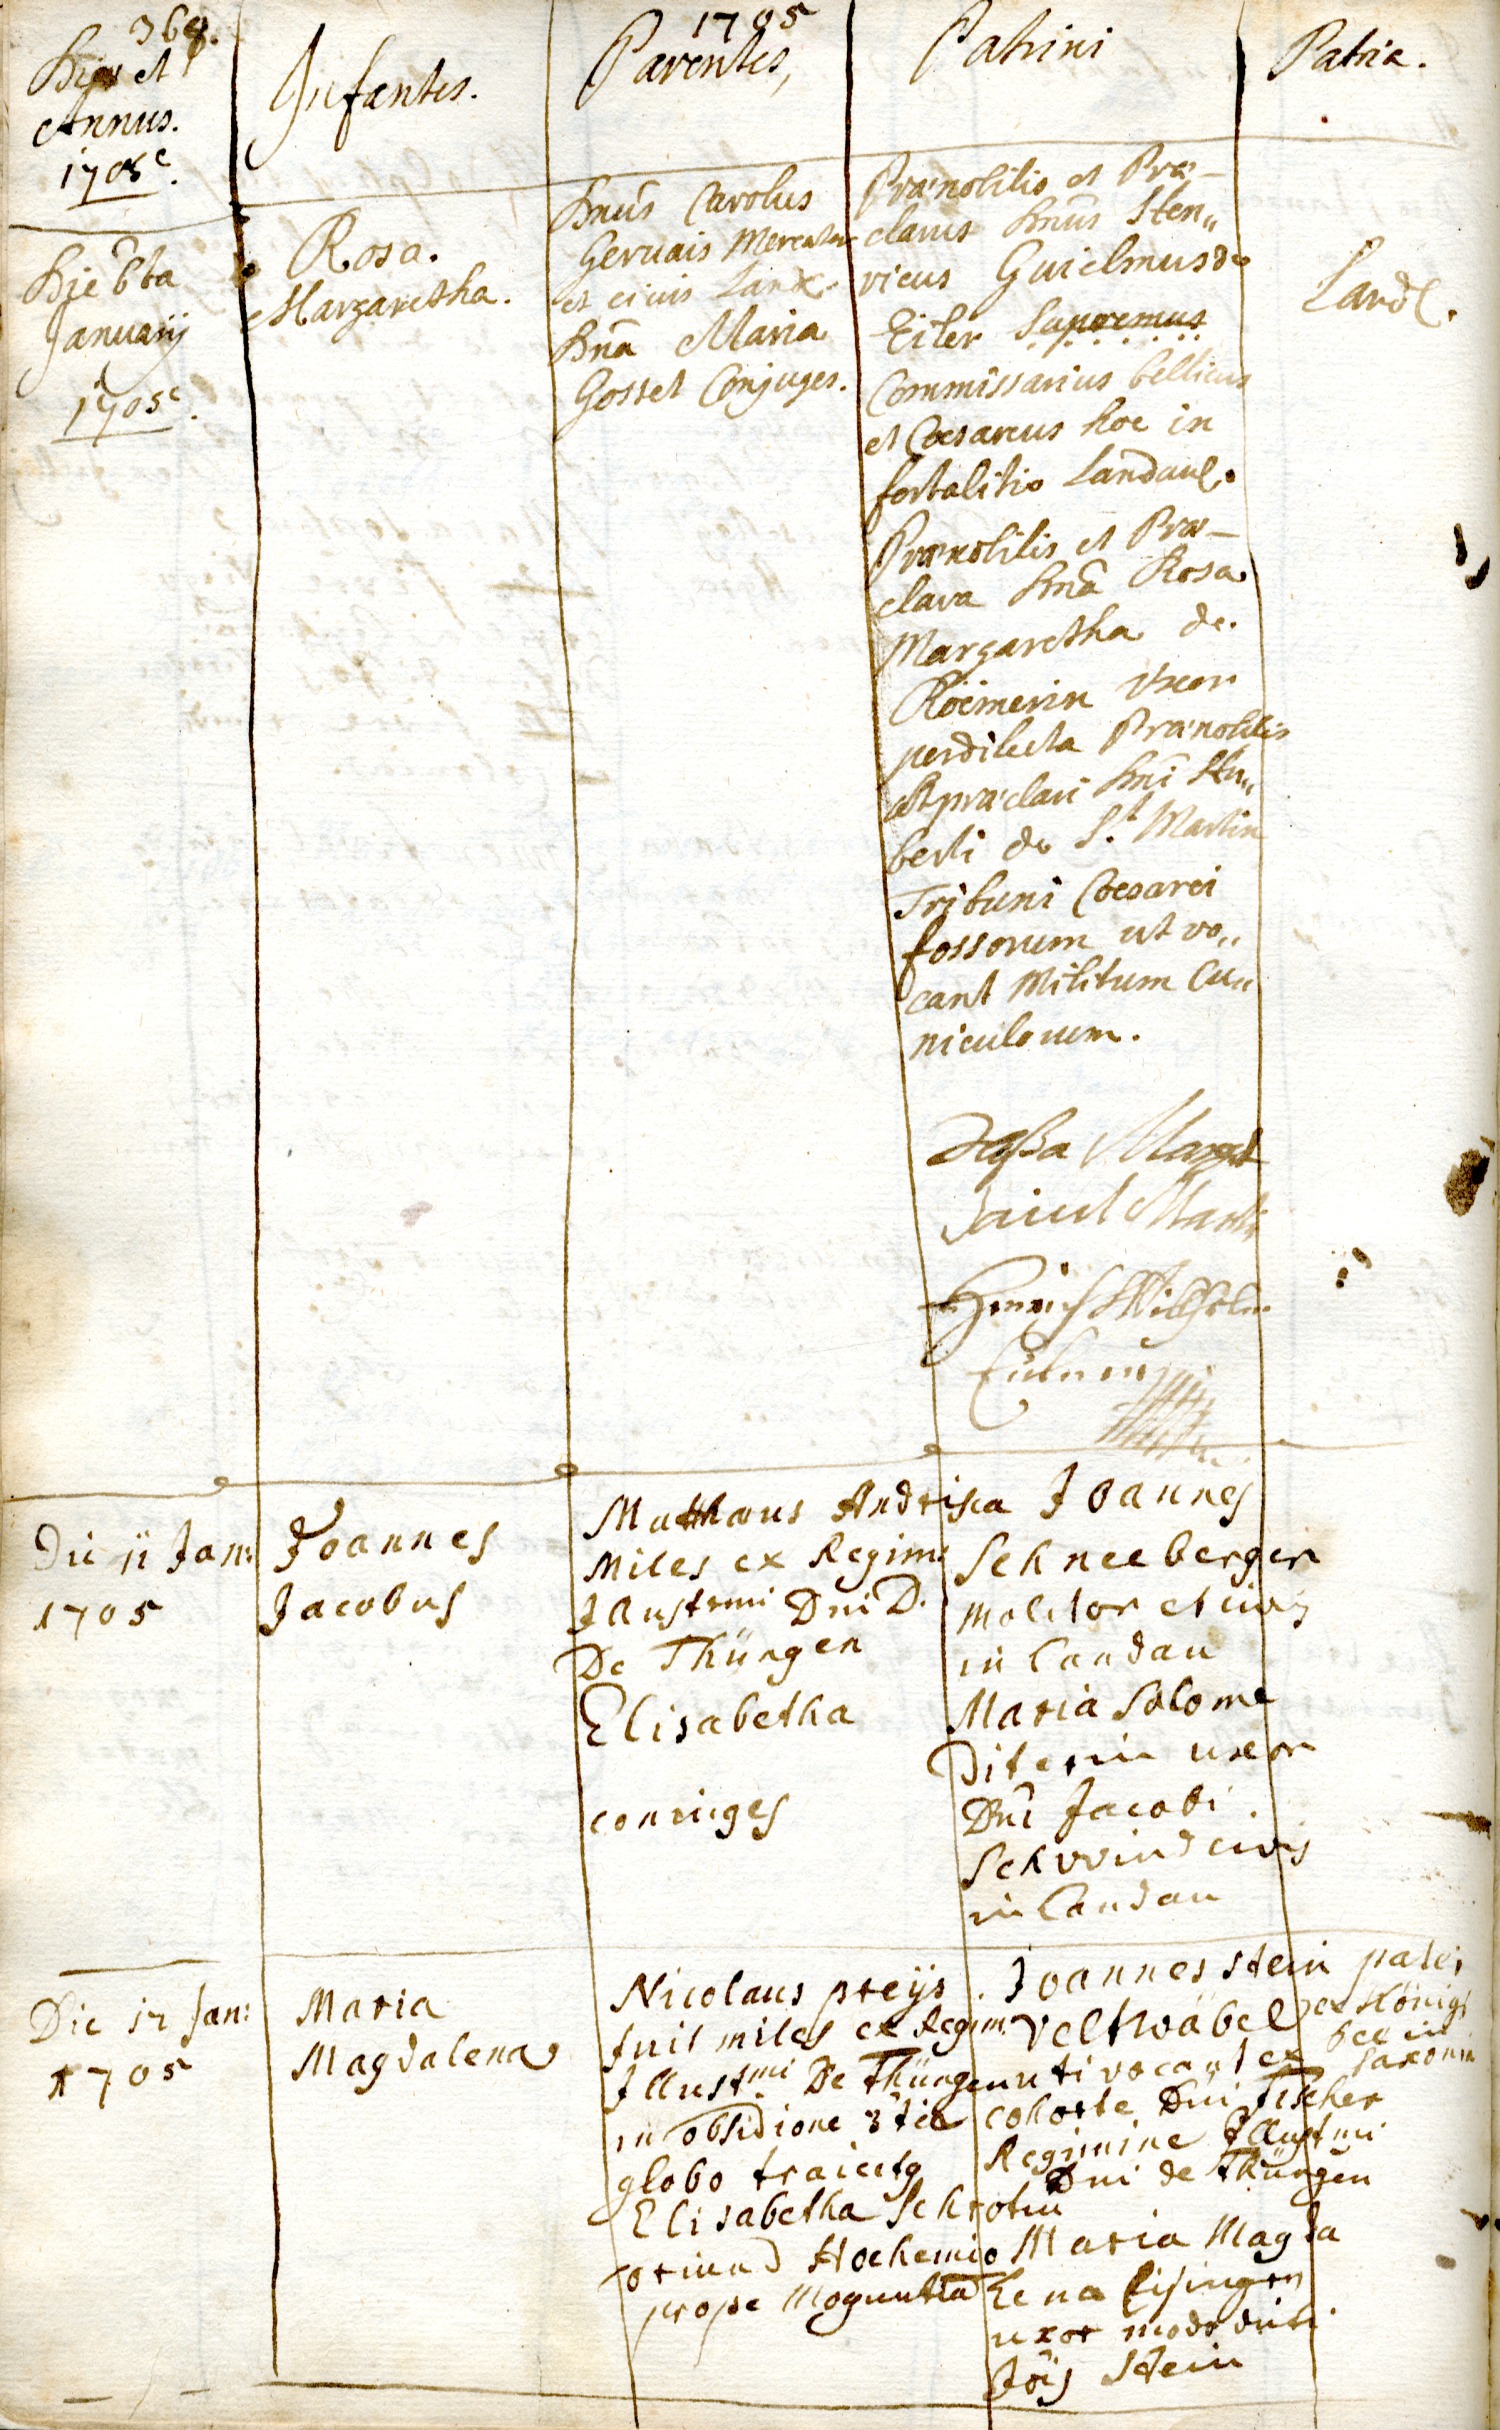 368.
1705
Dies et
Annus.
1705.
Infantes.
Parentes,
Patrini
Patria.
Die 6ta
Januarij
1705.
Rosa.
Margaretha.
Dnus Carolus
Gervais Mercator
et civis Land.
Dna Maria
Gosset Conjuges.
Prænobilis et Præ-
clarus Dnus Hen„
ricus Guielmus de
Eiler Supremus
Commissarius bellicus
et Cæsareus hoc in
fortalitio Landau.
Prænobilis et Præ-
clara Dna Rosa
Margaretha de
Roemerin Uxor
perdilecta Prænobilis
et præclari Dni Hu„
berti de St. Martin
Tribuni Cæsarei
fossorum ut vo„
cant Militum Cu„
niculorum.
Land.
Marg
Saint Martin
Henrich Wilhelm
Die 11 Jan:
1705
Joannes
Jacobus
Matthæus Andriska
Miles ex Regim:
Illustrmi Dni D.
De Thüngen
Elisabetha
coniuges
Joannes
Schneeberger
molitor et civis
in Landau
Maria Salome
Diterin uxor
Dni Jacobi
Schwind civis
in Landau
Die 12 Jan:
1705
Maria
Magdalena
Nicolaus preijs
fuit miles ex Regim:
Illustmi De Thüngen
in obsidione 3tia
globo traiectg
Elisabetha Schrotin
oriund Hochemio
prope Moguntiã
Joannes Stein
Veltwäbel
uti vocant ex
cohorte Dni Fischer
Regimine Illustmi
Dni de Thüngen
Maria Magda
lena
uxor modo dicti
Jois Stein
ex Königs
see in
Saxonia